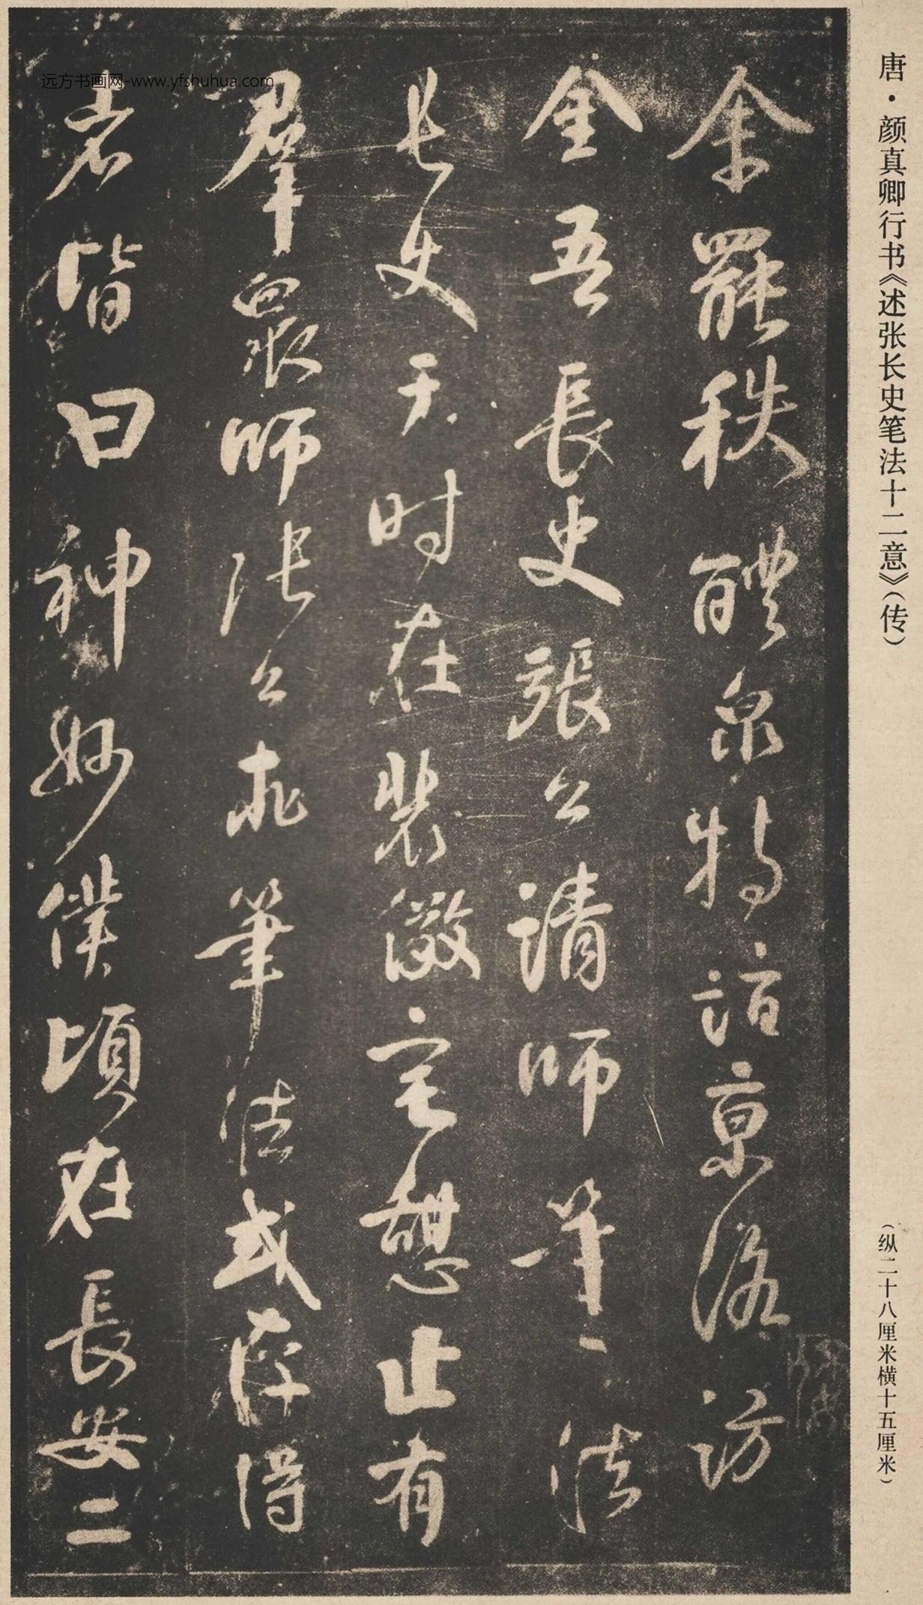 唐·颜真卿行书《述张长史笔法十二意》（传）
（纵二十八厘米横十五厘米）
余罷秩醴泉特詣京洛訪
金吾長史張公請師筆法
長史于时在裴儆宅憩止有
羣衆師張公求筆法或存得
者皆曰神妙僕頃在長安二
远方书画网-www.yfshuhua.com